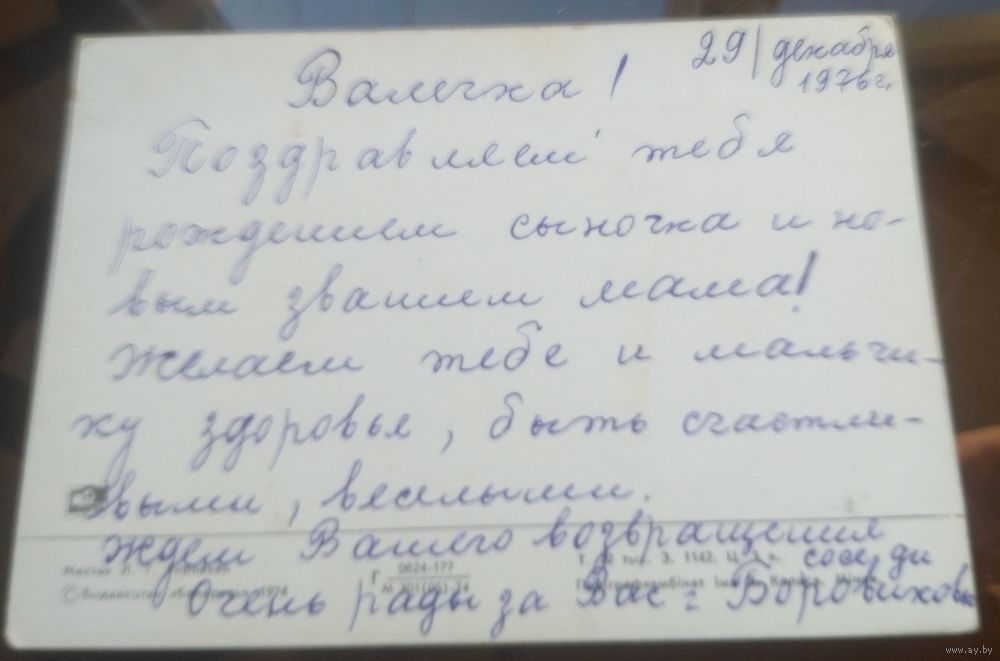 29/декабря
1976 г.
Валечка!
Поздравляем тебя
рождением сыночка и но-
вым званием мама!
Желаем тебе и мальчи-
ку здоровья, быть счастли-
выми, веселыми.
Ждем Вашего возвращения
соседи
Очень рады за Вас = Боровиковы
0624-177
1974
З. 1142. Ц.
www.ay.by